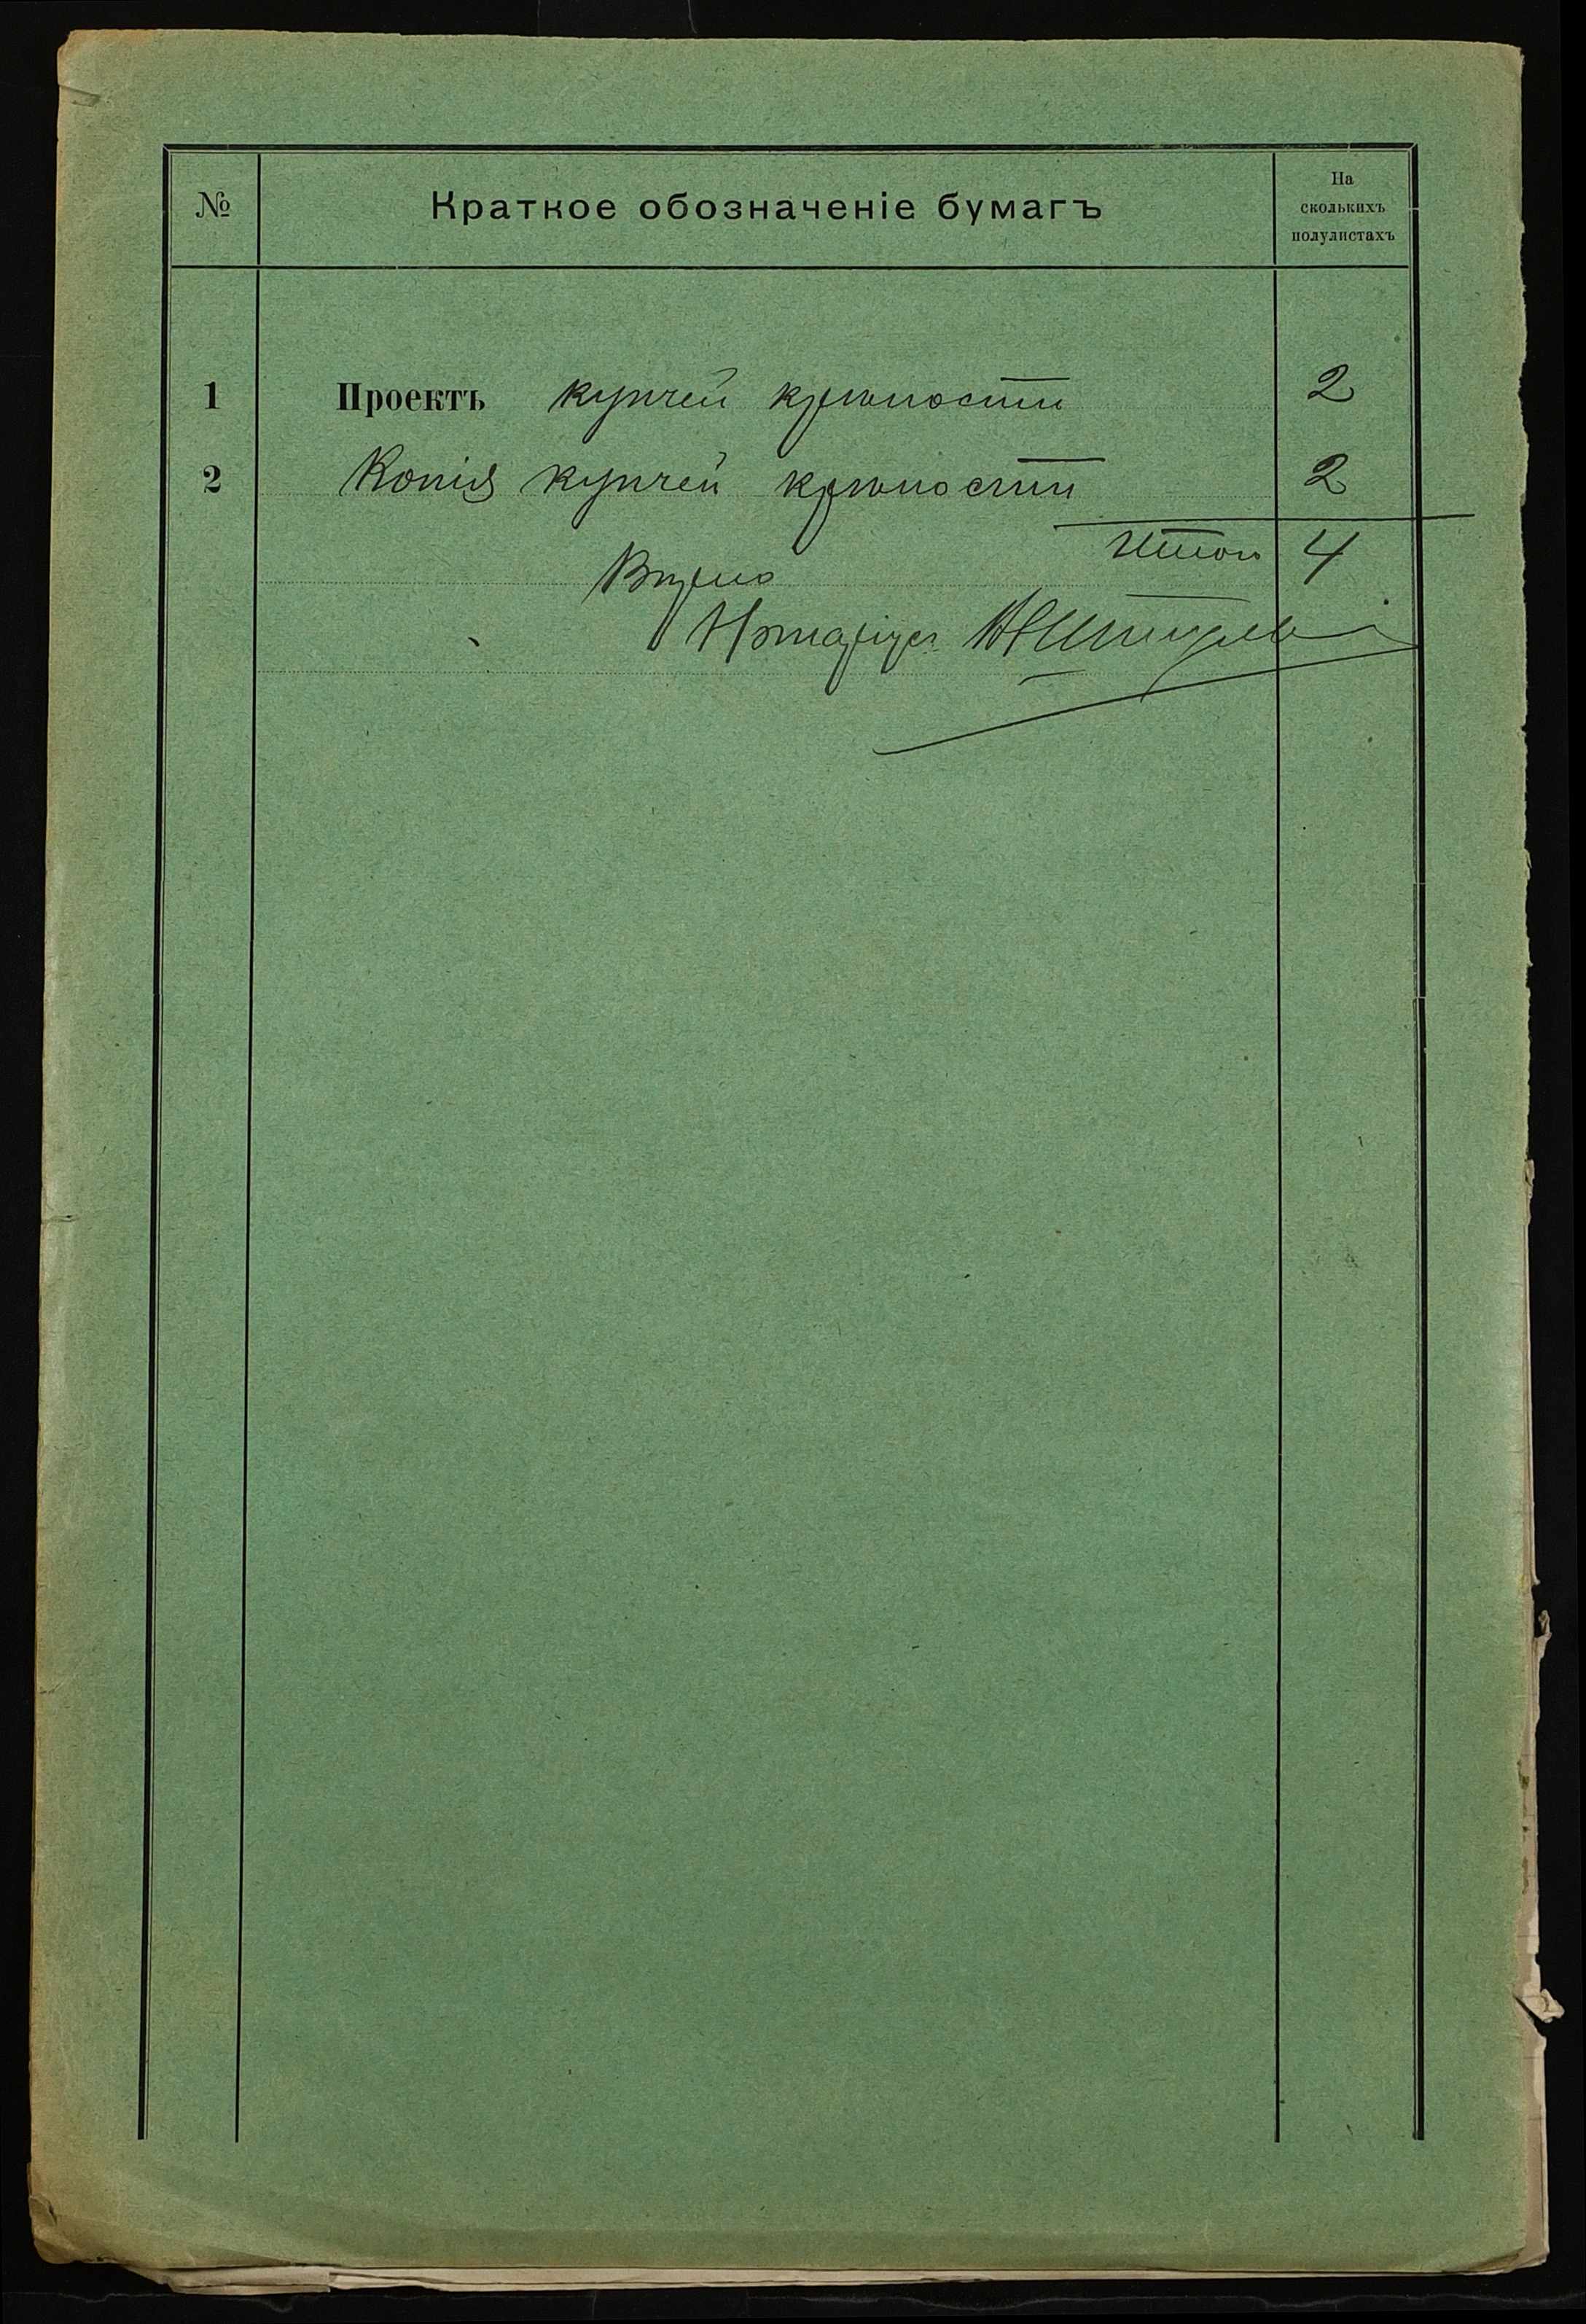 № Краткое обозначеніе бумагъ На сколькихъ полулистахъ
1 Проектъ купчей крѣпости 2
2 Копія купчей крѣпости 2
Итого 4
Вѣрно
Нотаріусъ